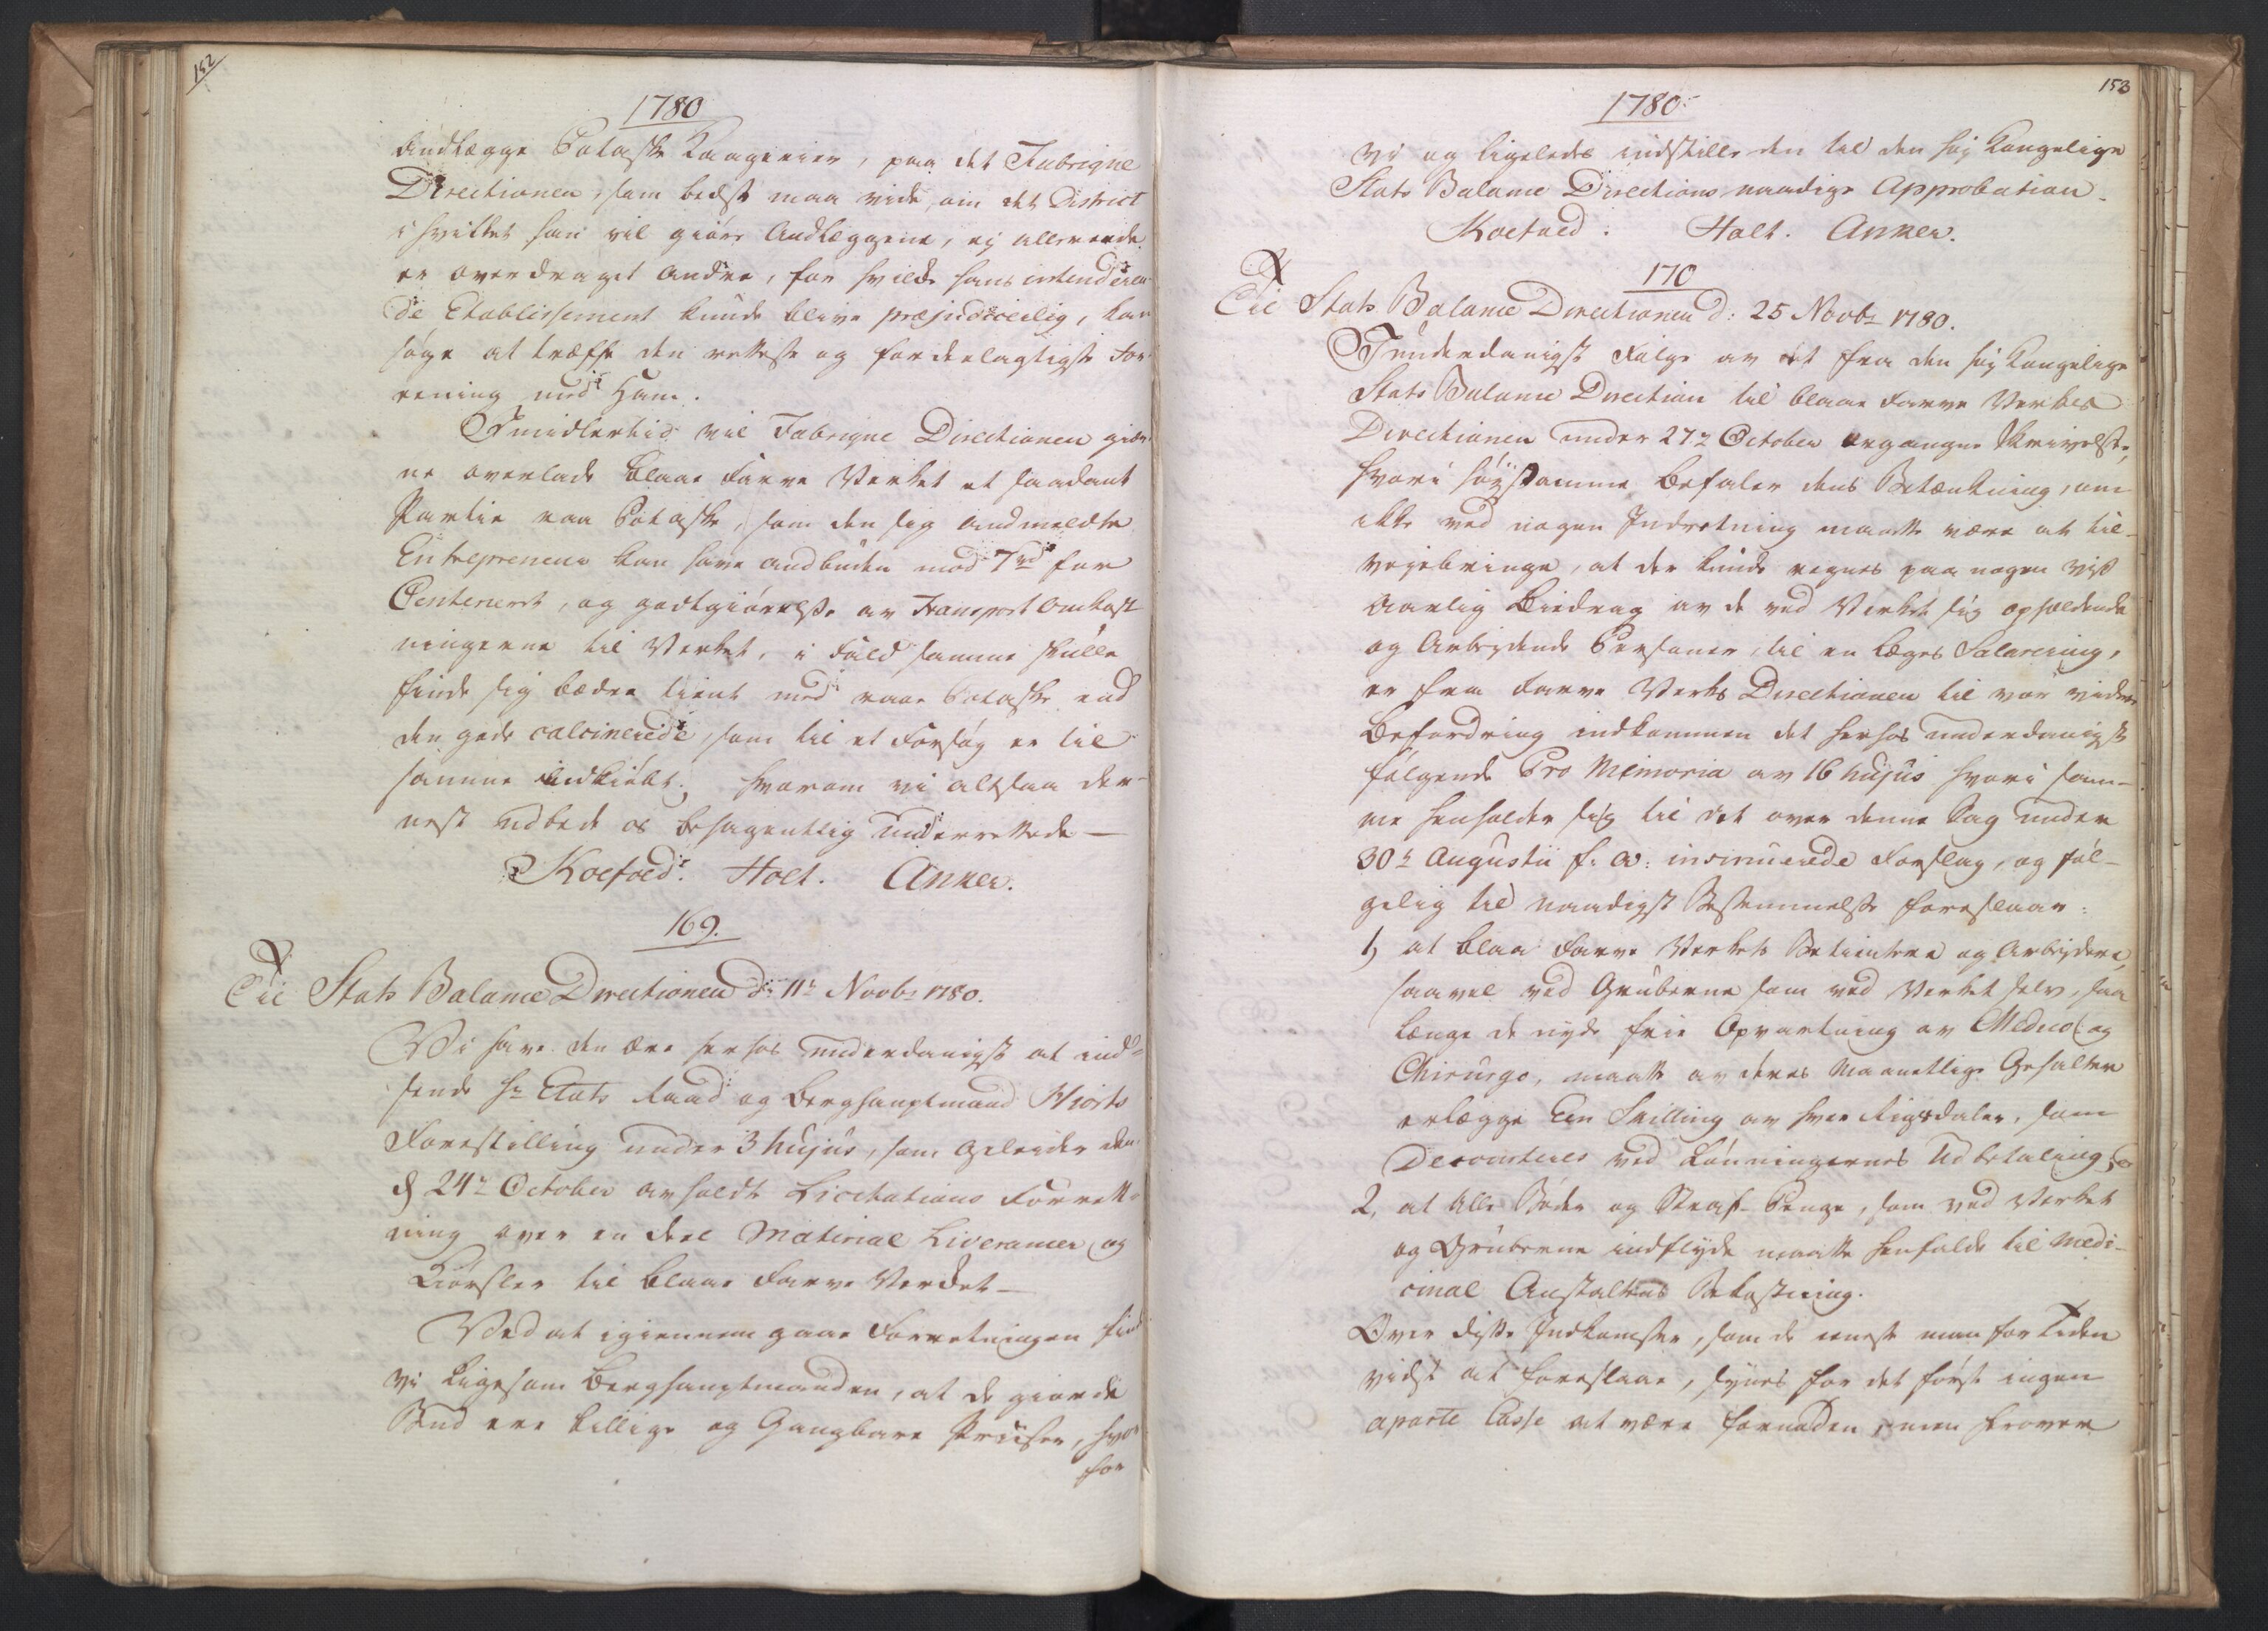 152
1780
Andlægge Potaske Kaagerier, paa det Fabrique
Directionen, som bedst maa vide, om det District
i hvilket han vil giøre Andlæggene, ej allereede
er overdraget andre, for hvilke hans intenderen-
de Etablissement kunde blive præjudicerlig, kan
søge at træffe den retteste og fordeelagtigste For-
eening med Ham.
Imidlertid vil Fabrique Directionen giær-
ne overlade Blaae Farve Verket et saadant
Partie raa Potaske, som den sig andmeldte
Entrepreneur kan have andbuden mod 7 rd for
Centeneret, og godtgiørelse av Transport Omkost
ningerne til Verket, i Fald samme skulle
finde sig bædre tient med raae Potaske end
den gode calcinerede, som til et Forsøg er til
samme indkiøbt; hvorom vi altsaa der-
nest udbede os behagentlig underrettede —
Koefoed. Holt. Anker.
169.
Til Stats Balance Directionen d: 11t Novbr 1780.
Vi have den ære herhos underdanigst at ind-
sende Hr Etats Raad og Berghauptmand Hiorts
Forestilling under 3 hujus, som geleider den
d 24t October avholdte Licitations Forrett-
ning over en deel Material Liverancer og
Kiørsler til Blaae Farve Verdet —
Ved at igiennem gaae Forretningen find
vi ligesom Berghauptmanden, at de giorde
Bud ere billige og Gangbare Priiser, hvor
for
153
1780
vi og ligeledes indstille den til den høj Kongelige
Stats Balance Directions naadige Approbation.
Koefoed. Holt. Anker.
170
Til Stats Balance Directionen d: 25 Novbr 1780.
I underdanigst Følge av det fra den høj Kongelige
Stats Balance Direction til Blaae Farve Verkes
Directionen under 27t October ergangne Skrivelse,
hvori høystsamme befaler dens Betænkning, om
ikke ved nogen Indretning maatte være at til-
vejebringe, at der kunde regnes paa nogen vis
aarlig Biedrag av de ved Verket sig opholdende
og Arbejdende Personer, til en Læges Salarering,
er fra Farve Verks Directionen til vor videre
Befordring indkommen det herhos underdanigst
følgende Pro Memoria av 16 hujus hvori sam-
me henholder sig til det over denne Sag under
30t Augustii f. A: insinuerede Forslag, og føl-
gelig til naadigst Bestemmelse foreslaar:
1) at Blaa Farve Verkets Betientere og Arbejdere,
saavel ved Gruberne som ved Verket selv, saa
længe de nyde frie Opvartning av Medico og
Chirurgo, maatte av deres Maanetlige Gehalter
erlægge Een Skilling av hver Rigsdaler, som
Decourteres ved Lønningernes Udbetaling, og
2, at alle Bøder og Straf-Penge, som ved Verket
og Gruberne indflyde maatte henfalde til Medi-
cinal Anstaltens Bekostning.
Over disse Indkomster, som de eneste man for Tiden
vidst at foreslaae, synes for det først ingen
aparte Casse at være fornøden, men